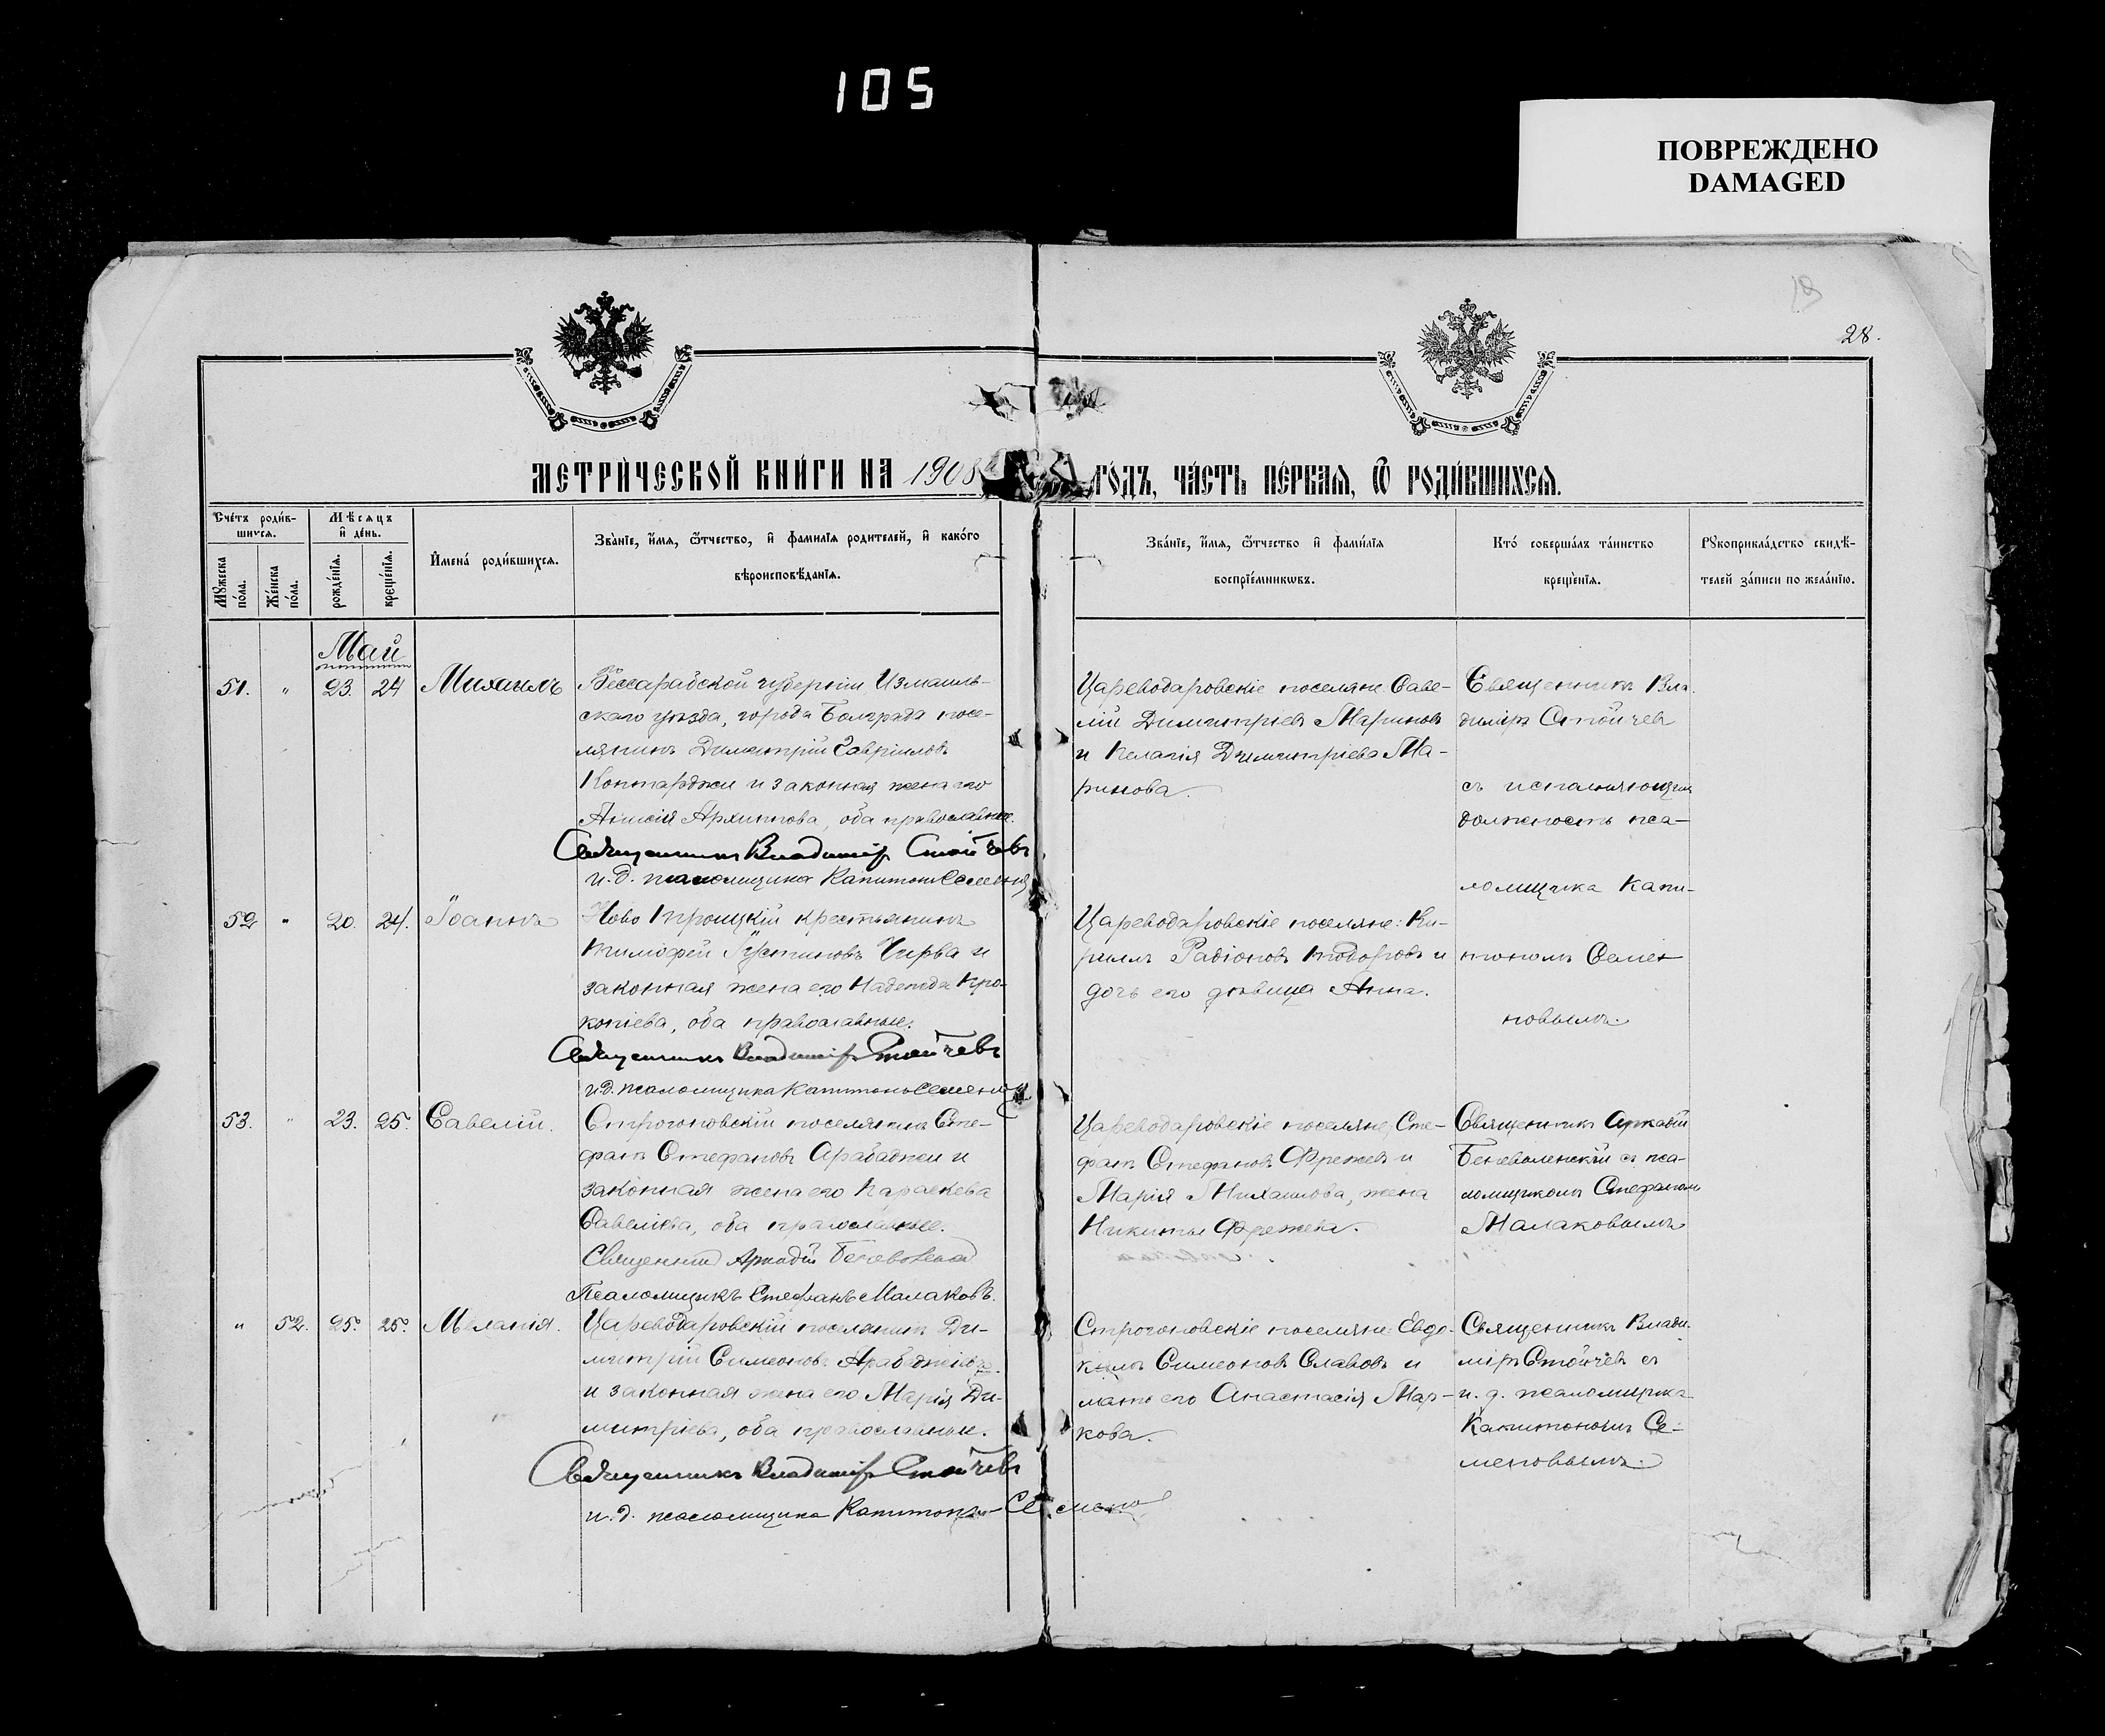 105
ПОВРЕЖДЕНО
DAMAGED
28.
МЕТРИ́ЧЕСКОЙ КНИ́ГИ НА 1908
ГО́ДЪ, ЧА́СТЬ ПЕ́РВАЯ, Ѿ РОДИ́ВШИХСЯ.
Сче́тъ роди́в-
шихся.
Мѣ́сяцъ
и҆ де́нь.
Мꙋ́жеска по́ла.
Же́нска по́ла.
рожде́нїя.
креще́нїя.
И҆мена̀ роди́вшихся.
Зва́нїе, и҆́мя, ѻ҆́тчество, и҆ фами́лїя роди́телей, и҆ како́го
вѣроисповѣ́данїя.
Зва́нїе, и҆́мя, ѻ҆́тчество и҆ фами́лїя
воспрїе́мникѡвъ.
Кто̀ соверша́лъ та́инство
креще́нїя.
Рꙋкоприкла́дство свидѣ́-
телей за́писи по жела́нїю.
Май
51. " 23. 24 Михаилъ
Бессарабской губерніи Измаиль-
скаго уѣзда, города Болграда посе-
лянинъ Димитрій Гавриловъ
Контарджи и законная жена его
Анисія Архиппова, оба православные.
Священникъ Владиміръ Стойчевъ
и.д. псаломщика Капитонъ Семеновъ
Цареводаровскіе поселяне: Саве-
лій Димитріевъ Мариновъ
и Пелагія Димитріева Ма-
ринова.
Священникъ Вла-
диміръ Стойчевъ
съ исполняющимъ
должность пса-
ломщика Капи-
тономъ Семе-
новымъ.
52 " 20. 24. Іоаннъ
Ново Троицкій крестьянинъ
Тимофей Іустиновъ Чирва и
законная жена его Надежда Про-
копіева, оба православные.
Священникъ Владиміръ Стойчевъ
и.д. псаломщика Капитонъ Семеновъ
Цареводаровскіе поселяне: Ки-
риллъ Радіоновъ Тодоровъ и
дочь его дѣвица Анна.
53. " 23. 25. Савелій.
Строгоновскій поселянинъ Сте-
фанъ Стефановъ Арабаджи и
законная жена его Параскева
Савеліева, оба православные.
Священникъ Аркадій Беневоленскій
Псаломщикъ Стефанъ Малаковъ.
Цареводаровскіе поселяне: Сте-
фанъ Стефановъ Фрежевъ и
Марія Михаилова, жена
Никиты Фрежева.
Священникъ Аркадій
Беневоленскій съ пса-
ломщикомъ Стефаномъ
Малаковымъ
" 52. 25. 25. Меланія.
Цареводаровскій поселянинъ Ди-
митрій Симеоновъ Арабаджіевъ
и законная жена его Марія Ди-
митріева, оба православные.
Священникъ Владиміръ Стойчевъ
и.д. псаломщика Капитонъ Семеновъ
Строгоновскіе поселяне: Евдо-
кимъ Симеоновъ Славовъ и
мать его Анастасія Мар-
кова.
Священникъ Влади-
міръ Стойчевъ съ
и. д. псаломщика
Капитономъ Се-
меновымъ.